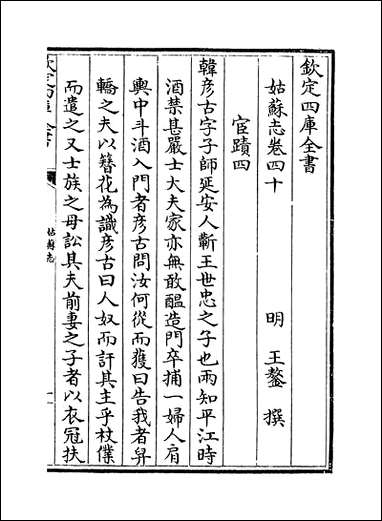 欽定四庫全書
姑蘇志卷四十
明　王鏊　撰
宦蹟四
韓彦古字子師延安人蘄王世忠之子也兩知平江時
酒禁甚嚴士大夫家亦無敢醖造門卒捕一婦人肩
輿中斗酒入門者彦古問汝何從而獲曰告我者舁
轎之夫以簪花為識彦古曰人奴而訐其主乎杖僕
而遣之又士族之母訟其夫前妻之子者以衣冠扶
姑蘇志
一